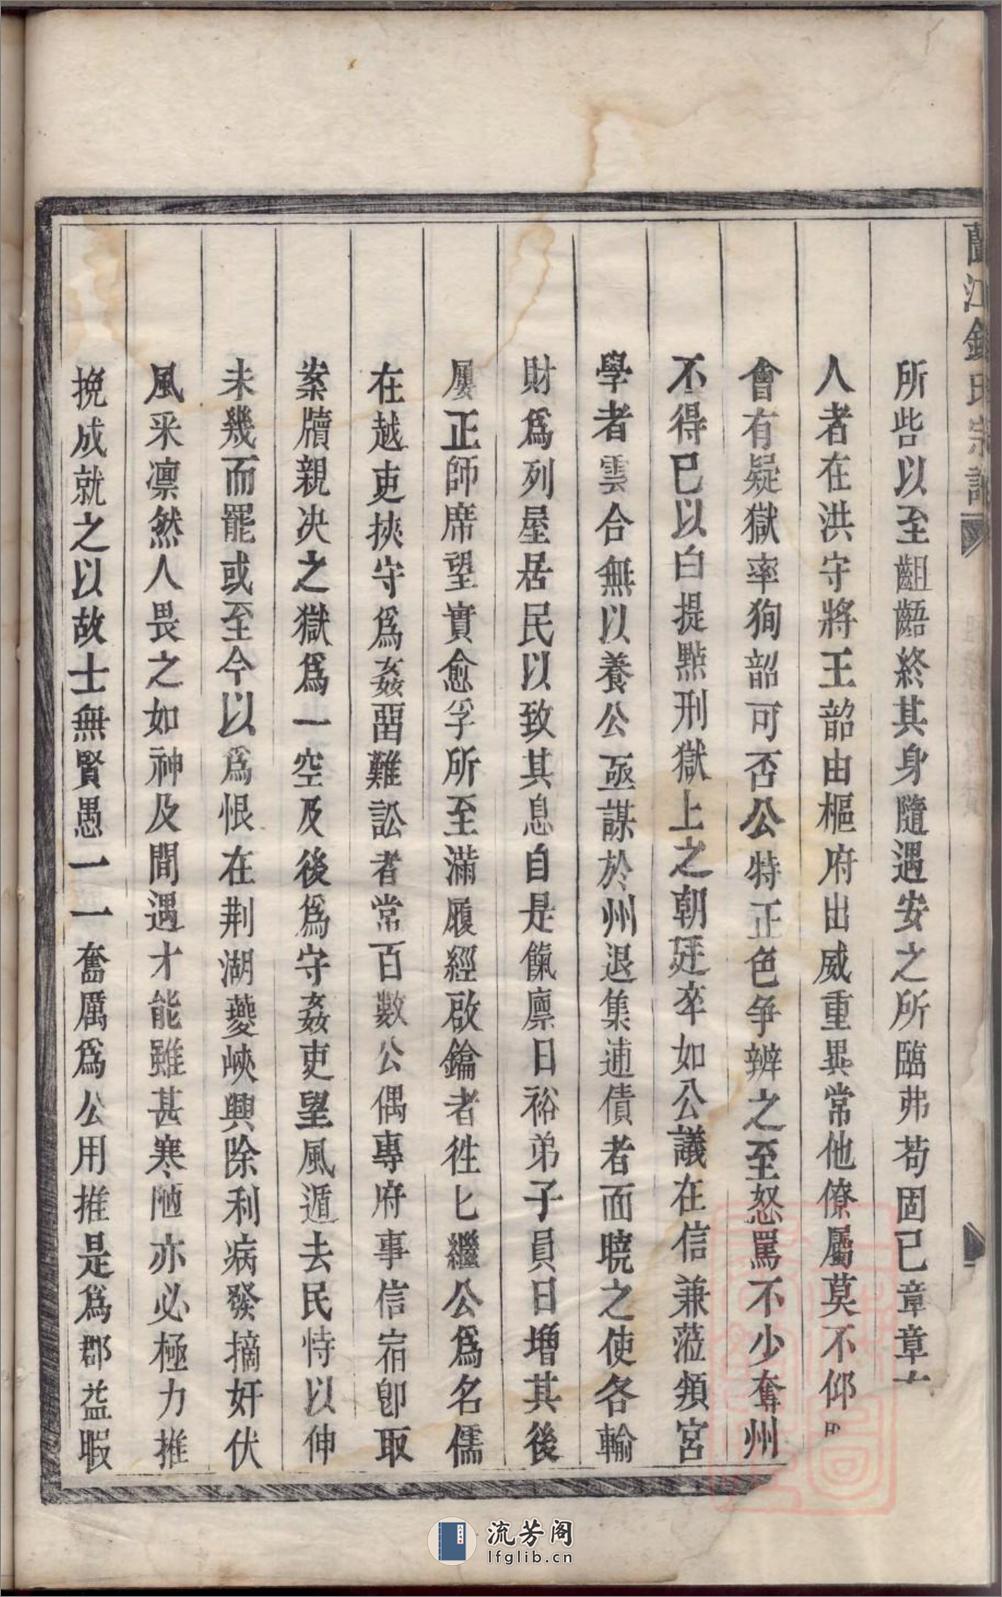 蘭江錢氏宗譜
所呰以至齟齬終其身隨遇安之所臨弗茍固已章章
人者在洪守將王韶由樞府出威重異常他僚屬莫不仰
會有疑獄率狥韶可否公特正色爭辨之至怒罵不少奪州
不得已以白提點刑獄上之朝廷卒如公議在信兼蒞頖宮
學者雲合無以養公亟謀於州退集逋債者面曉之使各輸
財爲列屋居民以致其息自是餼廪日裕弟子員日增其後
屢正師席望實愈孚所至滿履經啟鑰者徃匕繼公爲名儒
在越吏挾守爲姦畱難訟者常百數公偶專府事信宿卽取
案牘親决之獄爲一空及後爲守姦吏望風遁去民恃以伸
未幾而罷或至今以爲恨在荆湖夔峽興除利病發摘奸伏
風采凛然人畏之如神及間遇才能雖甚寒陋亦必極力推
挽成就之以故士無賢愚一一奮厲爲公用推是爲郡益暇
流芳阁
lfglib.cn